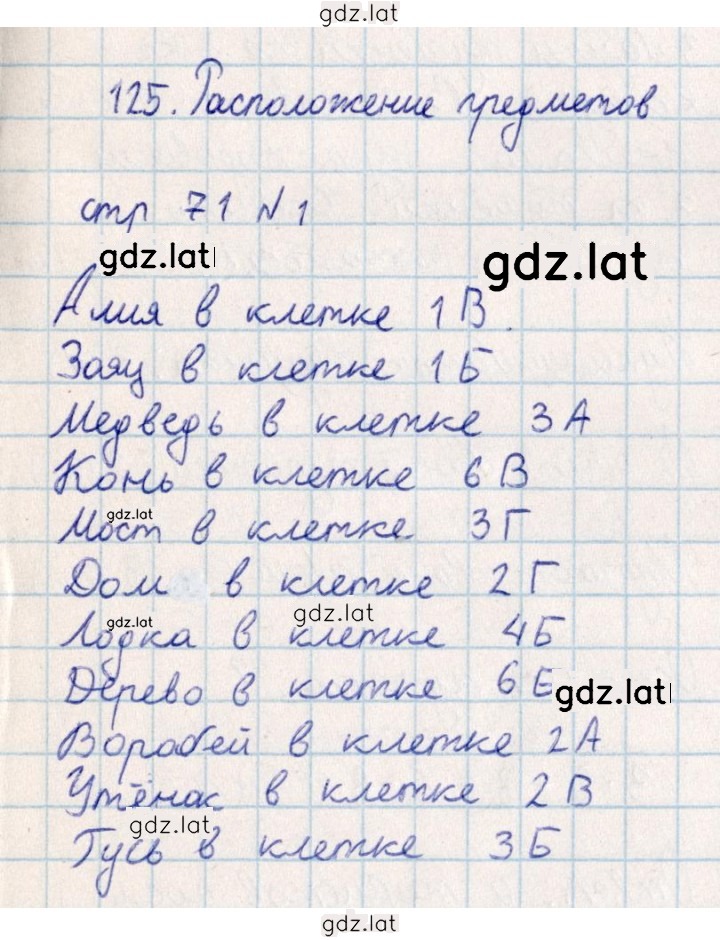 gdz.lat
125. Расположение предметов
стр 71 №1
gdz.lat gdz.lat
Алия в клетке 1В.
Заяц в клетке 1Б
Медведь в клетке 3А
Конь в клетке 6В
gdz.lat
Мост в клетке 3Г
Дом в клетке 2Г
gdz.lat gdz.lat
Лодка в клетке 4Б
Дерево в клетке 6Е
gdz.lat
Воробей в клетке 2А
Утёнок в клетке 2В
gdz.lat
Гусь в клетке 3Б
gdz.lat